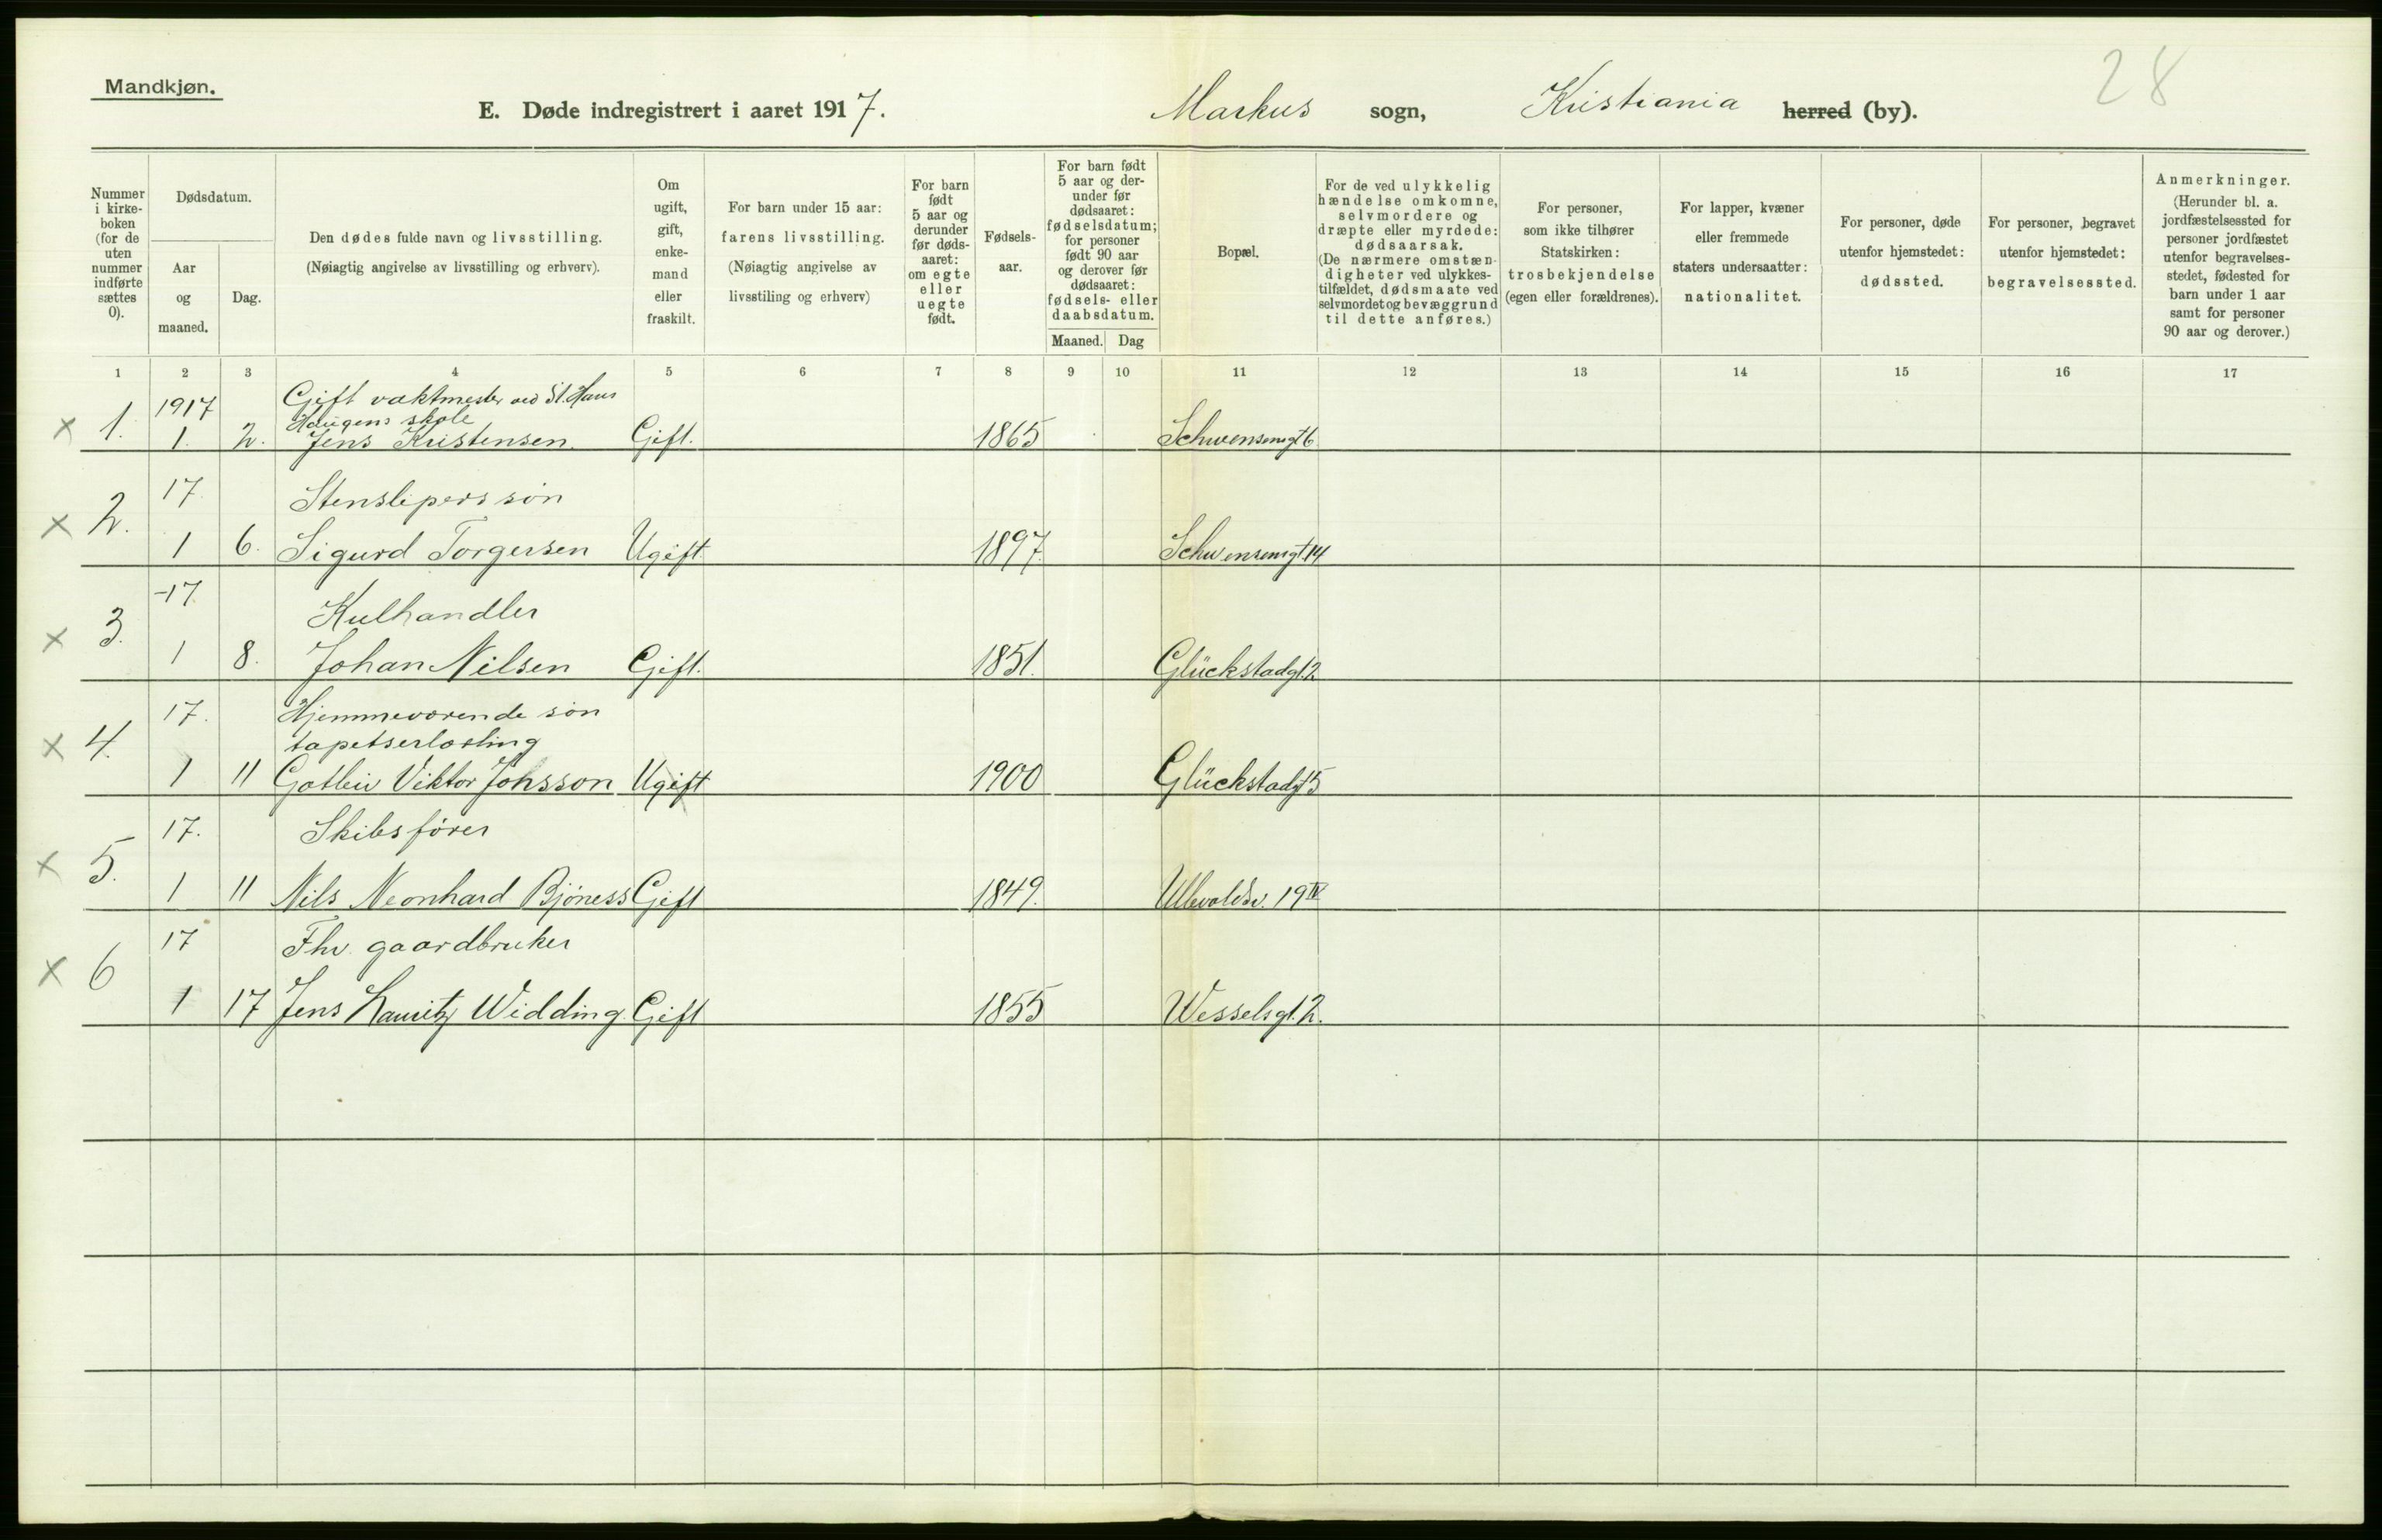 Mandkjøn.
28
E. Døde indregistrert i aaret 1917. Markus sogn, Kristiania herred (by).
Nummer i kirke-
boken
(for de
uten
nummer
indførte
sættes
0).
Dødsdatum.
Aar
og
maaned.
Dag.
Den dødes fulde navn og livsstilling.
(Nøiagtig angivelse av livsstilling og erhverv).
Om
ugift,
gift,
enke-
mand
eller
fraskilt.
For barn under 15 aar:
farens livsstilling.
(Nøiagtig angivelse av
livsstiling og erhverv)
For barn
født
5 aar og
derunder
før døds-
aaret:
om egte
eller
uegte
født.
Fødsels-
aar.
For barn født
5 aar og der-
under før
dødsaaret:
fødselsdatum;
for personer
født 90 aar
og derover før
dødsaaret:
fødsels- eller
daabsdatum.
Maaned. Dag
Bopæl.
For de ved ulykkelig
hændelse omkomne,
selvmordere og
dræpte eller myrdede:
dødsaarsak.
(De nærmere omstæn-
digheter ved ulykkes-
tilfældet, dødsmaate ved
selvmordet og bevæggrund
til dette anføres.)
For personer,
som ikke tilhører
Statskirken:
trosbekjendelse
(egen eller forældrenes).
For lapper, kvæner
eller fremmede
staters undersaatter:
nationalitet.
For personer, døde
utenfor hjemstedet:
dødssted.
For personer, begravet
utenfor hjemstedet:
begravelsessted.
Anmerkninger.
(Herunder bl. a.
jordfæstelsessted for
personer jordfæstet
utenfor begravelses-
stedet, fødested for
barn under 1 aar
samt for personer
90 aar og derover.)
1 2 3 4 5 6 7 8 9 10 11 12 13 14 15 16 17
1917 Gift vaktmester ved St. Hans
Haugens skole
x 1. 1. 2. Jens Kristensen. Gift. 1865 Schwensensgt 6
17. Stenslipers søn
x 2. 1 6. Sigurd Torgersen Ugift. 1897. Schwensensgt 14
-17. Kulhandler
x 3. 1 8. Johan Nilsen Gift. 1851. Glückstadgt. 2
17. Hjemmeværende søn
tapetserlærling
x 4. 1 11 Gotleiv Viktor Johsson Ugift 1900 Glückstadgt 5
17. Skibsfører
x 5. 1 11 Nils Neonhard Bjöness Gift 1849. Ullevoldsv. 19 IV
17 Fhv. gaardbruker
x 6 1 17 Jens Lauritz Widding Gift 1855 Wesselsgt. 2.